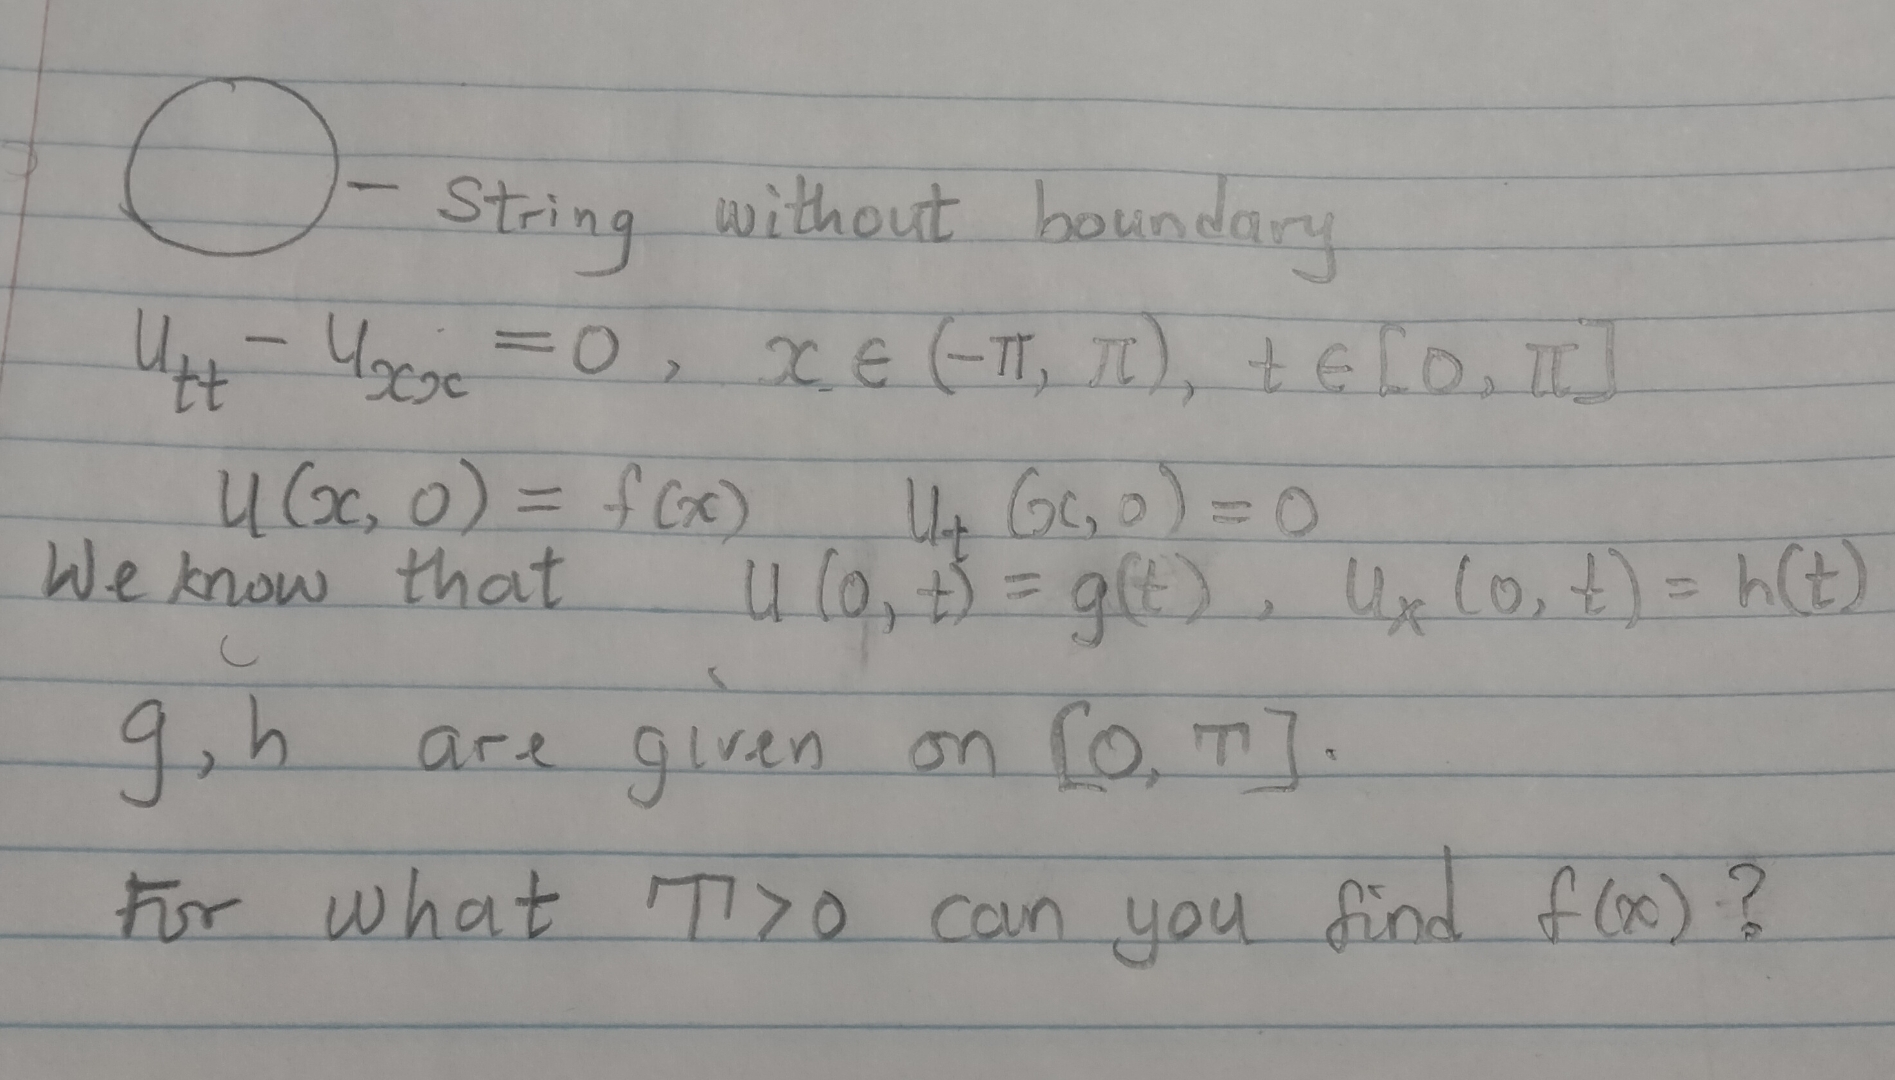 — String without boundary
u_tt - u_xx = 0, x ∈ (-π, π), t ∈ [0, π]
u(x, 0) = f(x) u_t(x, 0) = 0
We know that u(0, t) = g(t), u_x(0, t) = h(t)
g, h are given on [0, T].
For what T>0 can you find f(x)?